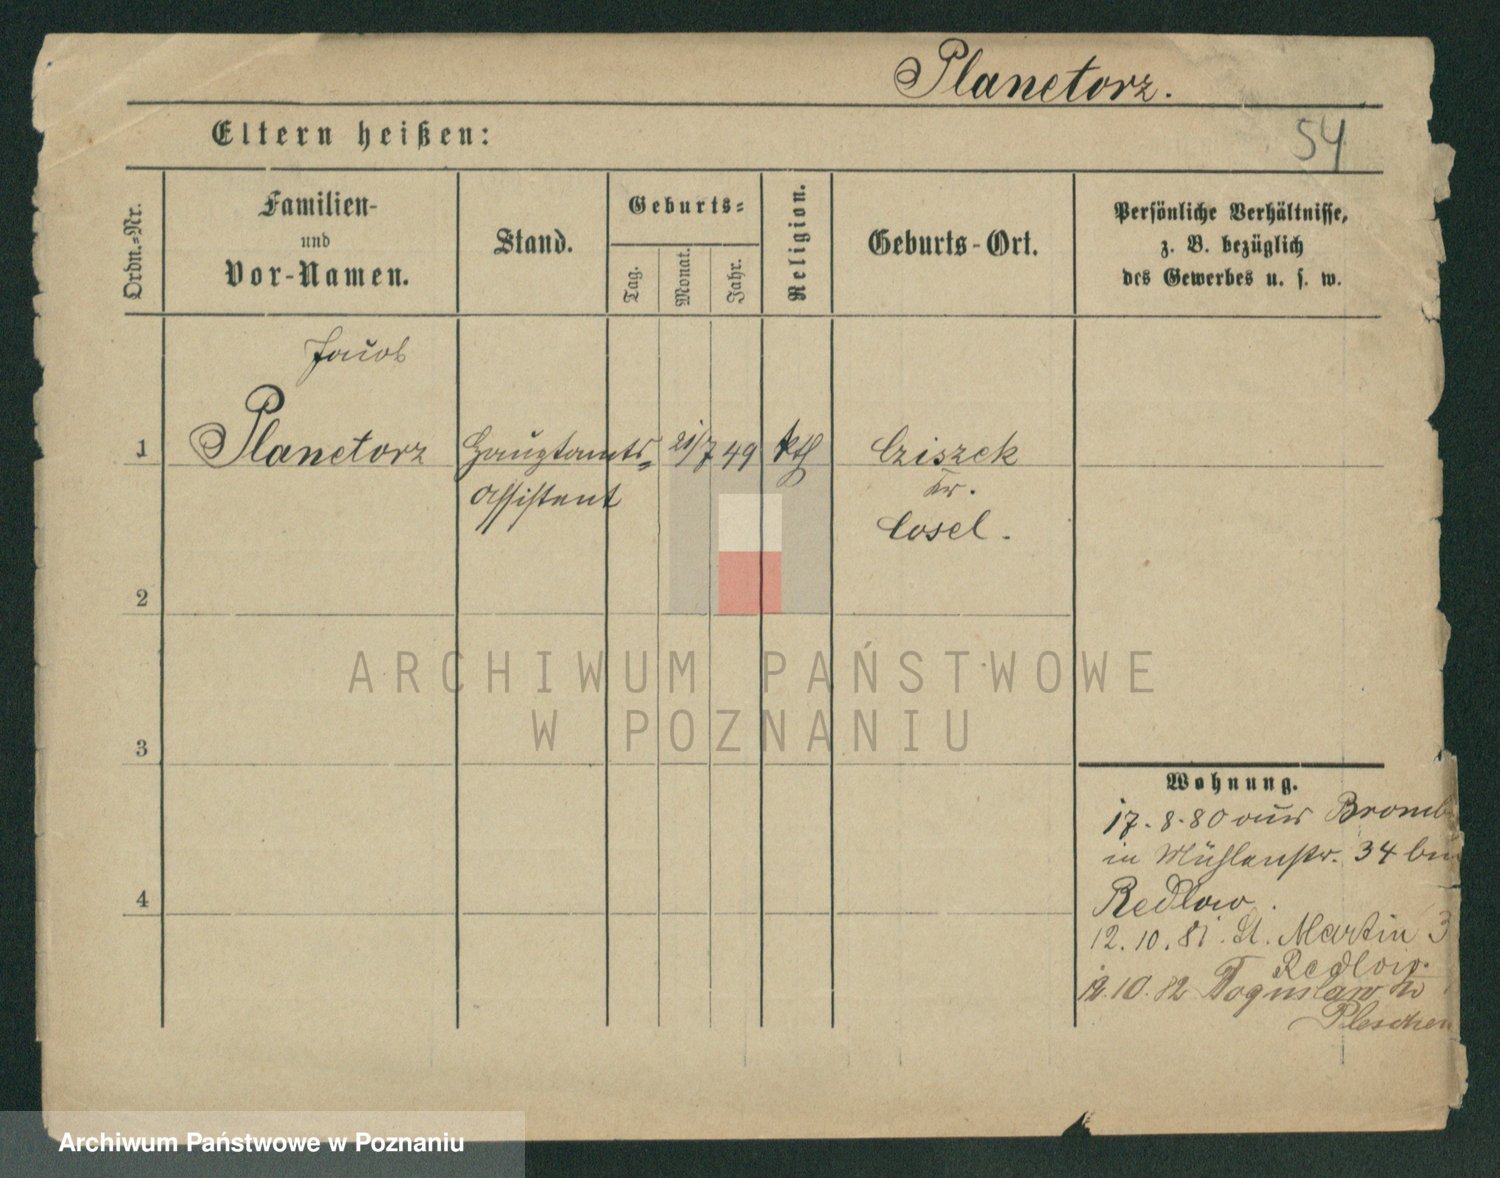 Planetorz.
54
Eltern heißen:
Ordn.=Nr.
Familien-
und
Vor-Namen.
Stand.
Geburts=
Tag.
Monat.
Jahr.
Religion.
Geburts-Ort.
Persönliche Verhältnisse,
z. B. bezüglich
des Gewerbes u. s. w.
Jacob
1 Planetorz Hauptamts= 21/7 49 kth Cziszek
assistent Kr.
Cosel.
2
ARCHIWUM PAŃSTWOWE
W POZNANIU
3
Wohnung.
17.8.80 aus Bromb
in Mühlenstr. 34 bei
Redlow.
4
12.10.81. St. Martin 3
Redlow.
12.10.82
Pleschen
Archiwum Państwowe w Poznaniu